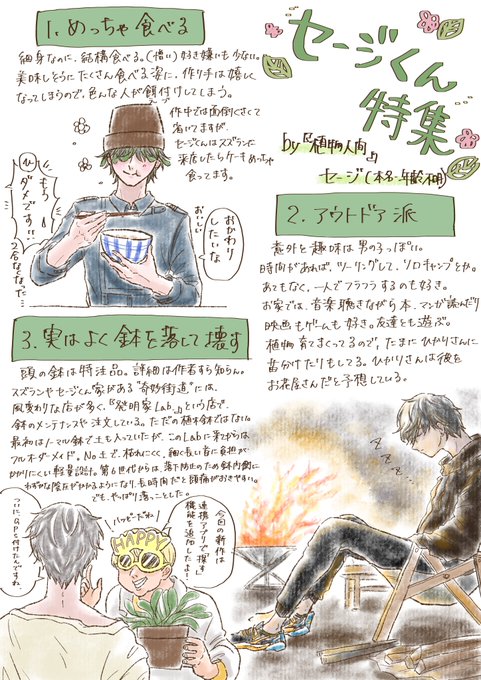 セージくん
特集
by『植物人間』
セージ(本名・年齢不明)
1. めっちゃ食べる
細身なのに、結構食べる。(憎い)好き嫌いも少ない。
美味しそうにたくさん食べる姿に、作り手は嬉しく
なってしまうので、色んな人が餌付けしてしまう。
作中では面倒くさくて
省いてますが、
セージくんはスズランに
来店したらケーキめっちゃ
食ってます。
おかわり
したいな
おいしい
もう
ダメです!!
2合なくなった…
2. アウトドア派
意外と趣味は男の子っぽい。
時間があれば、ツーリングして、ソロキャンプとか。
あてもなく、一人でフラフラするのも好き。
お家では、音楽聴きながら本、マンガ読んだり
映画もゲームも好き。友達とも遊ぶ。
植物育てまくってるので、たまにひかりさんに
苗分けたりもしてる。ひかりさんは彼を
お花屋さんだと予想している。
3. 実はよく鉢を落して壊す
頭の鉢は特注品。詳細は作者すら知らん。
スズランやセージくん家がある"奇妙街道"には、
風変わりな店が多く、『発明家Lab.』という店で、
鉢のメンテナンスや注文している。ただの植木鉢ではない。
最初はノーマル鉢で土も入っていたが、このLabに来てからは
フルオーダーメイド。No土で、枯れにくく、細く長い首に負担が
かかりにくい軽量設計。第6世代からは、落下防止のため鉢内側に
わずかな陰圧がかかるようになり、長時間だと頭痛がおきやすい。
でも、やっぱり落っことした。
今回の新作は
連携アプリで探す
機能を追加したよ!
ハッピーだね!
HAPPY
ついにGPS付けたんですね
Z Z Z…